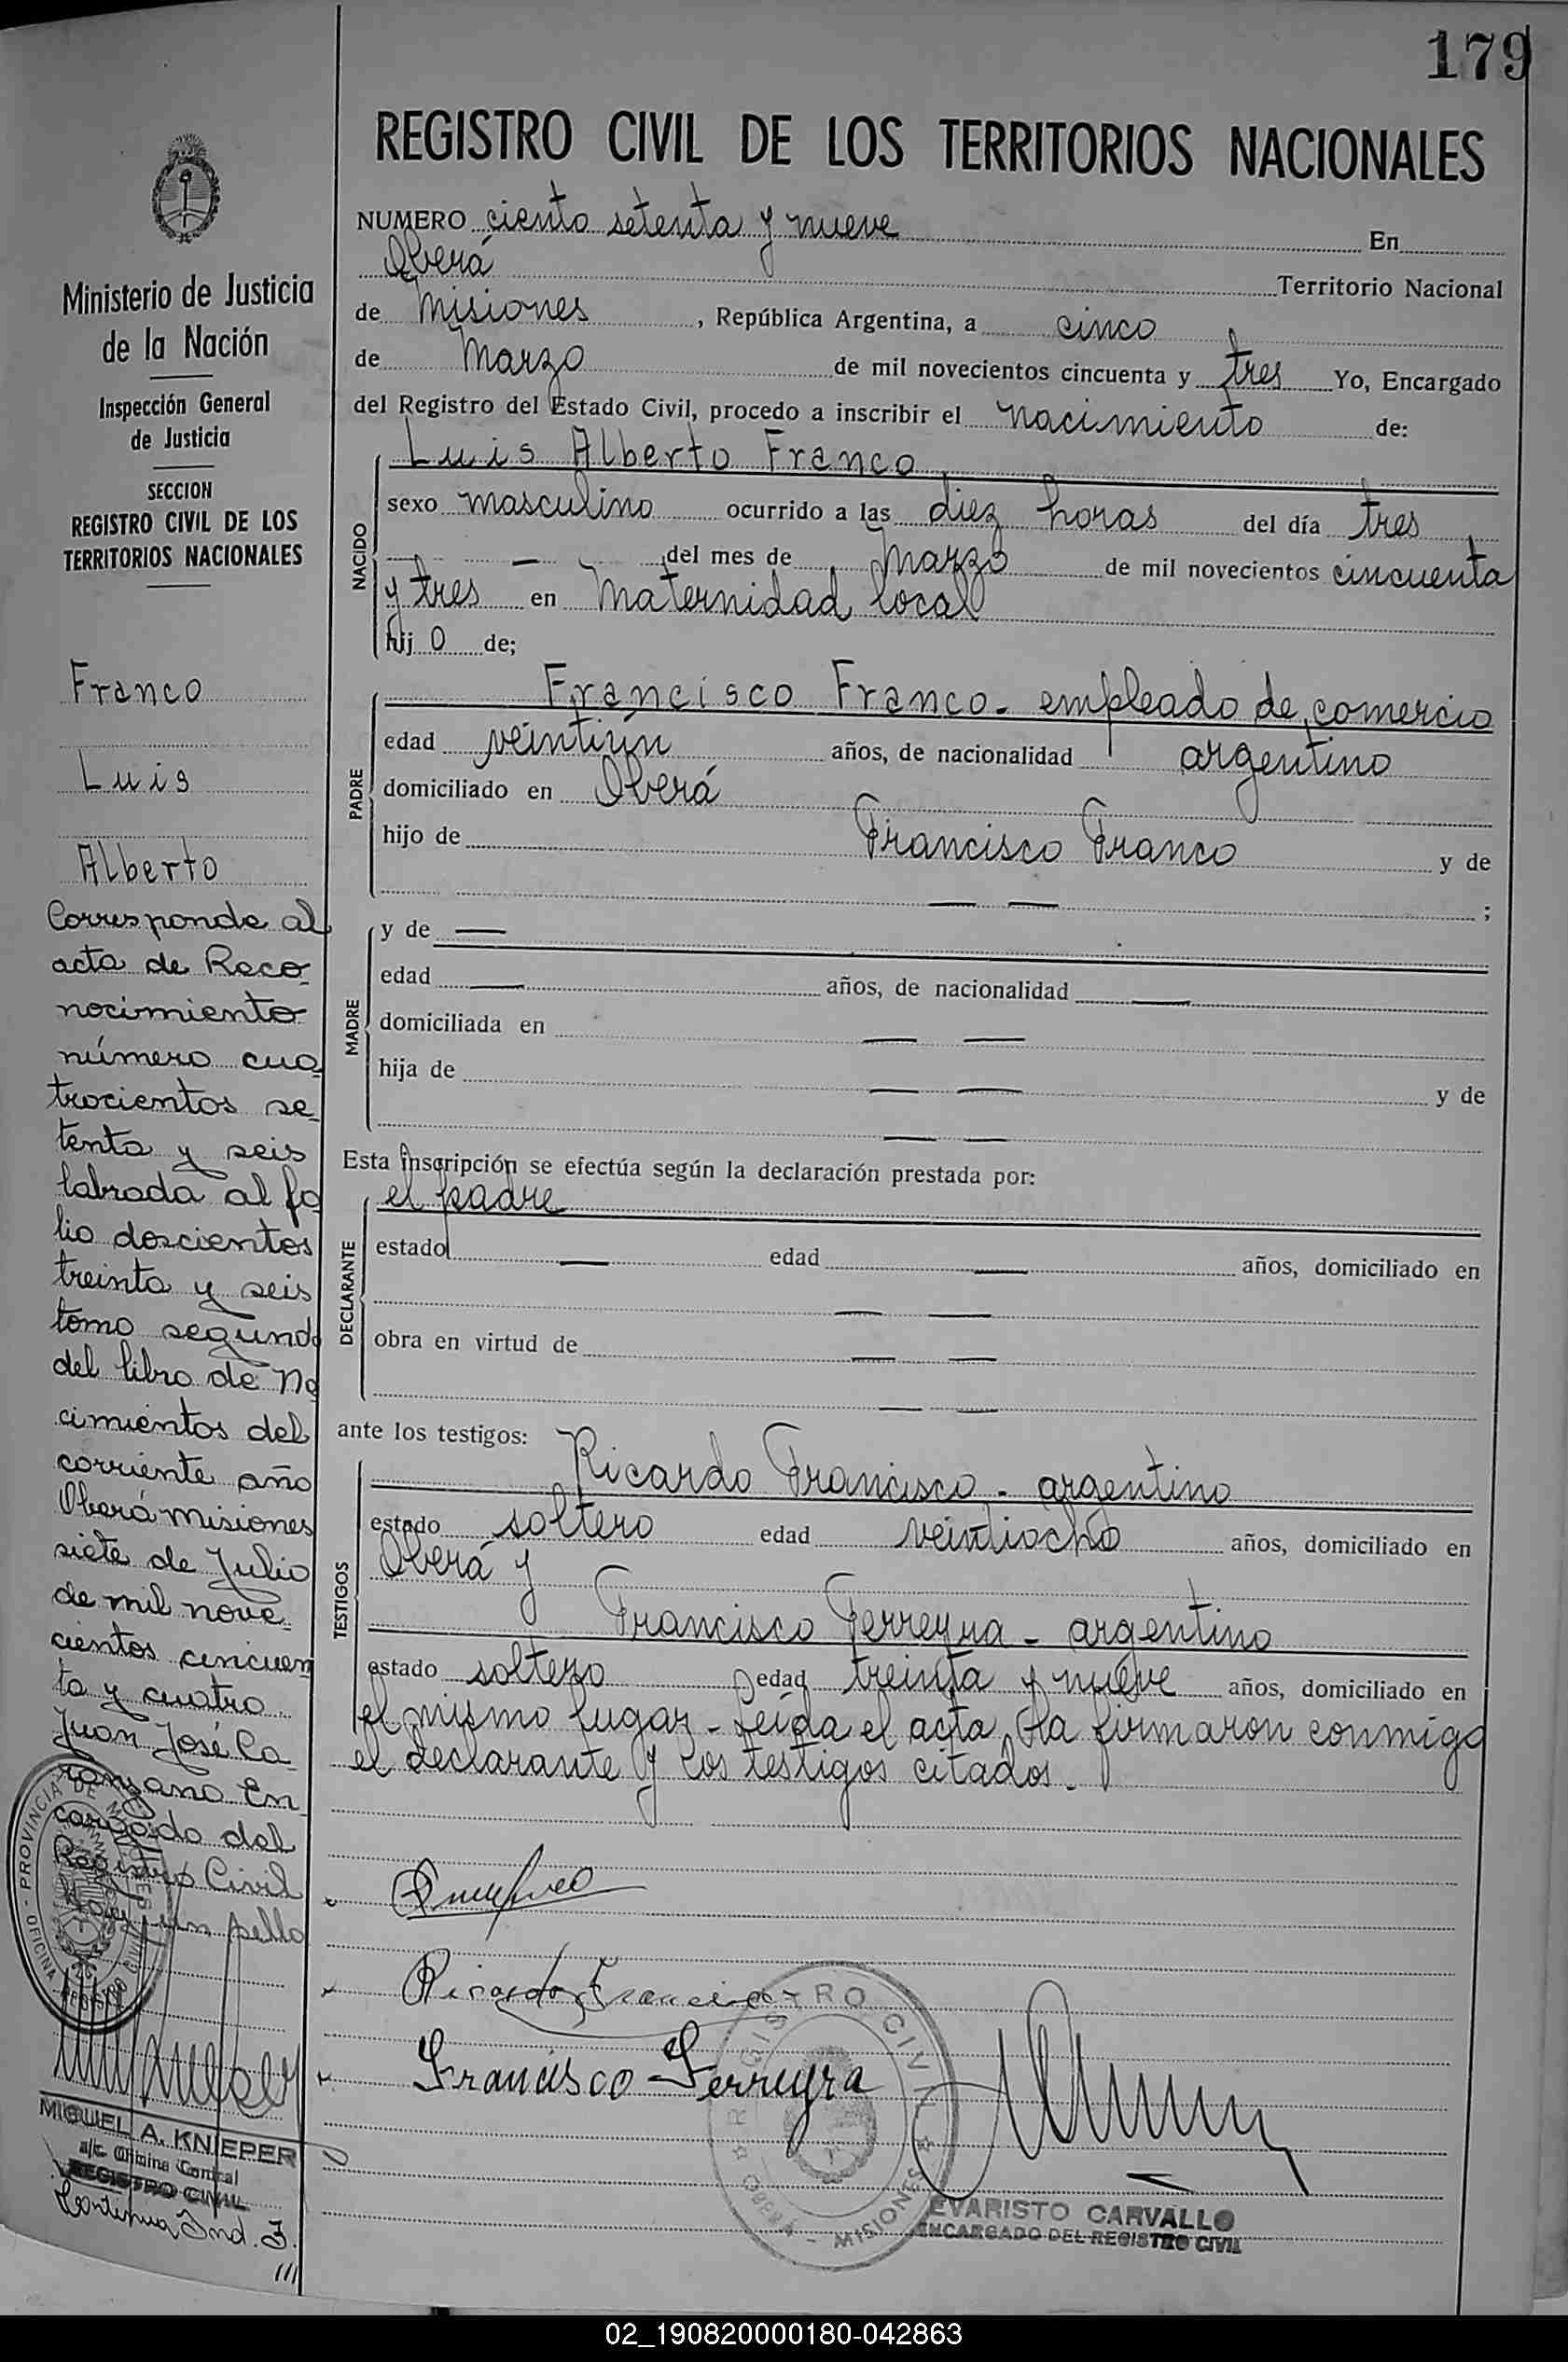 179
REGISTRO CIVIL DE LOS TERRITORIOS NACIONALES
NUMERO ciento setenta y nueve En
Oberá Territorio Nacional
de Misiones, República Argentina, a cinco
de Marzo de mil novecientos cincuenta y tres Yo, Encargado
del Registro del Estado Civil, procedo a inscribir el nacimiento de:
NACIDO
Luis Alberto Franco
sexo masculino ocurrido a las diez horas del día tres
— del mes de Marzo de mil novecientos cincuenta
y tres en Maternidad local
hijo de;
PADRE
Francisco Franco - empleado de comercio
edad veintiún años, de nacionalidad argentino
domiciliado en Oberá
hijo de Francisco Franco y de
— — ;
MADRE
y de —
edad — años, de nacionalidad —
domiciliada en — —
hija de — — y de
— —
Esta inscripción se efectúa según la declaración prestada por:
DECLARANTE
el padre
estado — edad — años, domiciliado en
— —
obra en virtud de — —
— —
ante los testigos:
TESTIGOS
Ricardo Francisco - argentino
estado soltero edad veintiocho años, domiciliado en
Oberá y
Francisco Ferreyra - argentino
estado soltero edad treinta y nueve años, domiciliado en
el mismo lugar - Leída el acta, la firmaron conmigo
el declarante y los testigos citados.-
Ricardo Francisco
Francisco Ferreyra
REGISTRO CIVIL
OBERÁ - MISIONES
EVARISTO CARVALLO
ENCARGADO DEL REGISTRO CIVIL
Ministerio de Justicia
de la Nación
Inspección General
de Justicia
SECCION
REGISTRO CIVIL DE LOS
TERRITORIOS NACIONALES
Franco
Luis
Alberto
Corresponde al
acta de Reco-
nocimiento
número cua
trocientos se-
tenta y seis
labrada al fo
lio doscientos
treinta y seis
tomo segundo
del libro de Na
cimientos del
corriente año
Oberá Misiones
siete de Julio
de mil nove-
cientos cincuen
ta y cuatro.
Juan José Ca-
ranzano En
cargado del
Registro Civil
Hay un sello
PROVINCIA DE MISIONES
OFICINA REGISTRO CIVIL
MIGUEL A. KNIEPER
a/c. Oficina Central
REGISTRO CIVIL
Continua Ind. F.
///
02_190820000180-042863